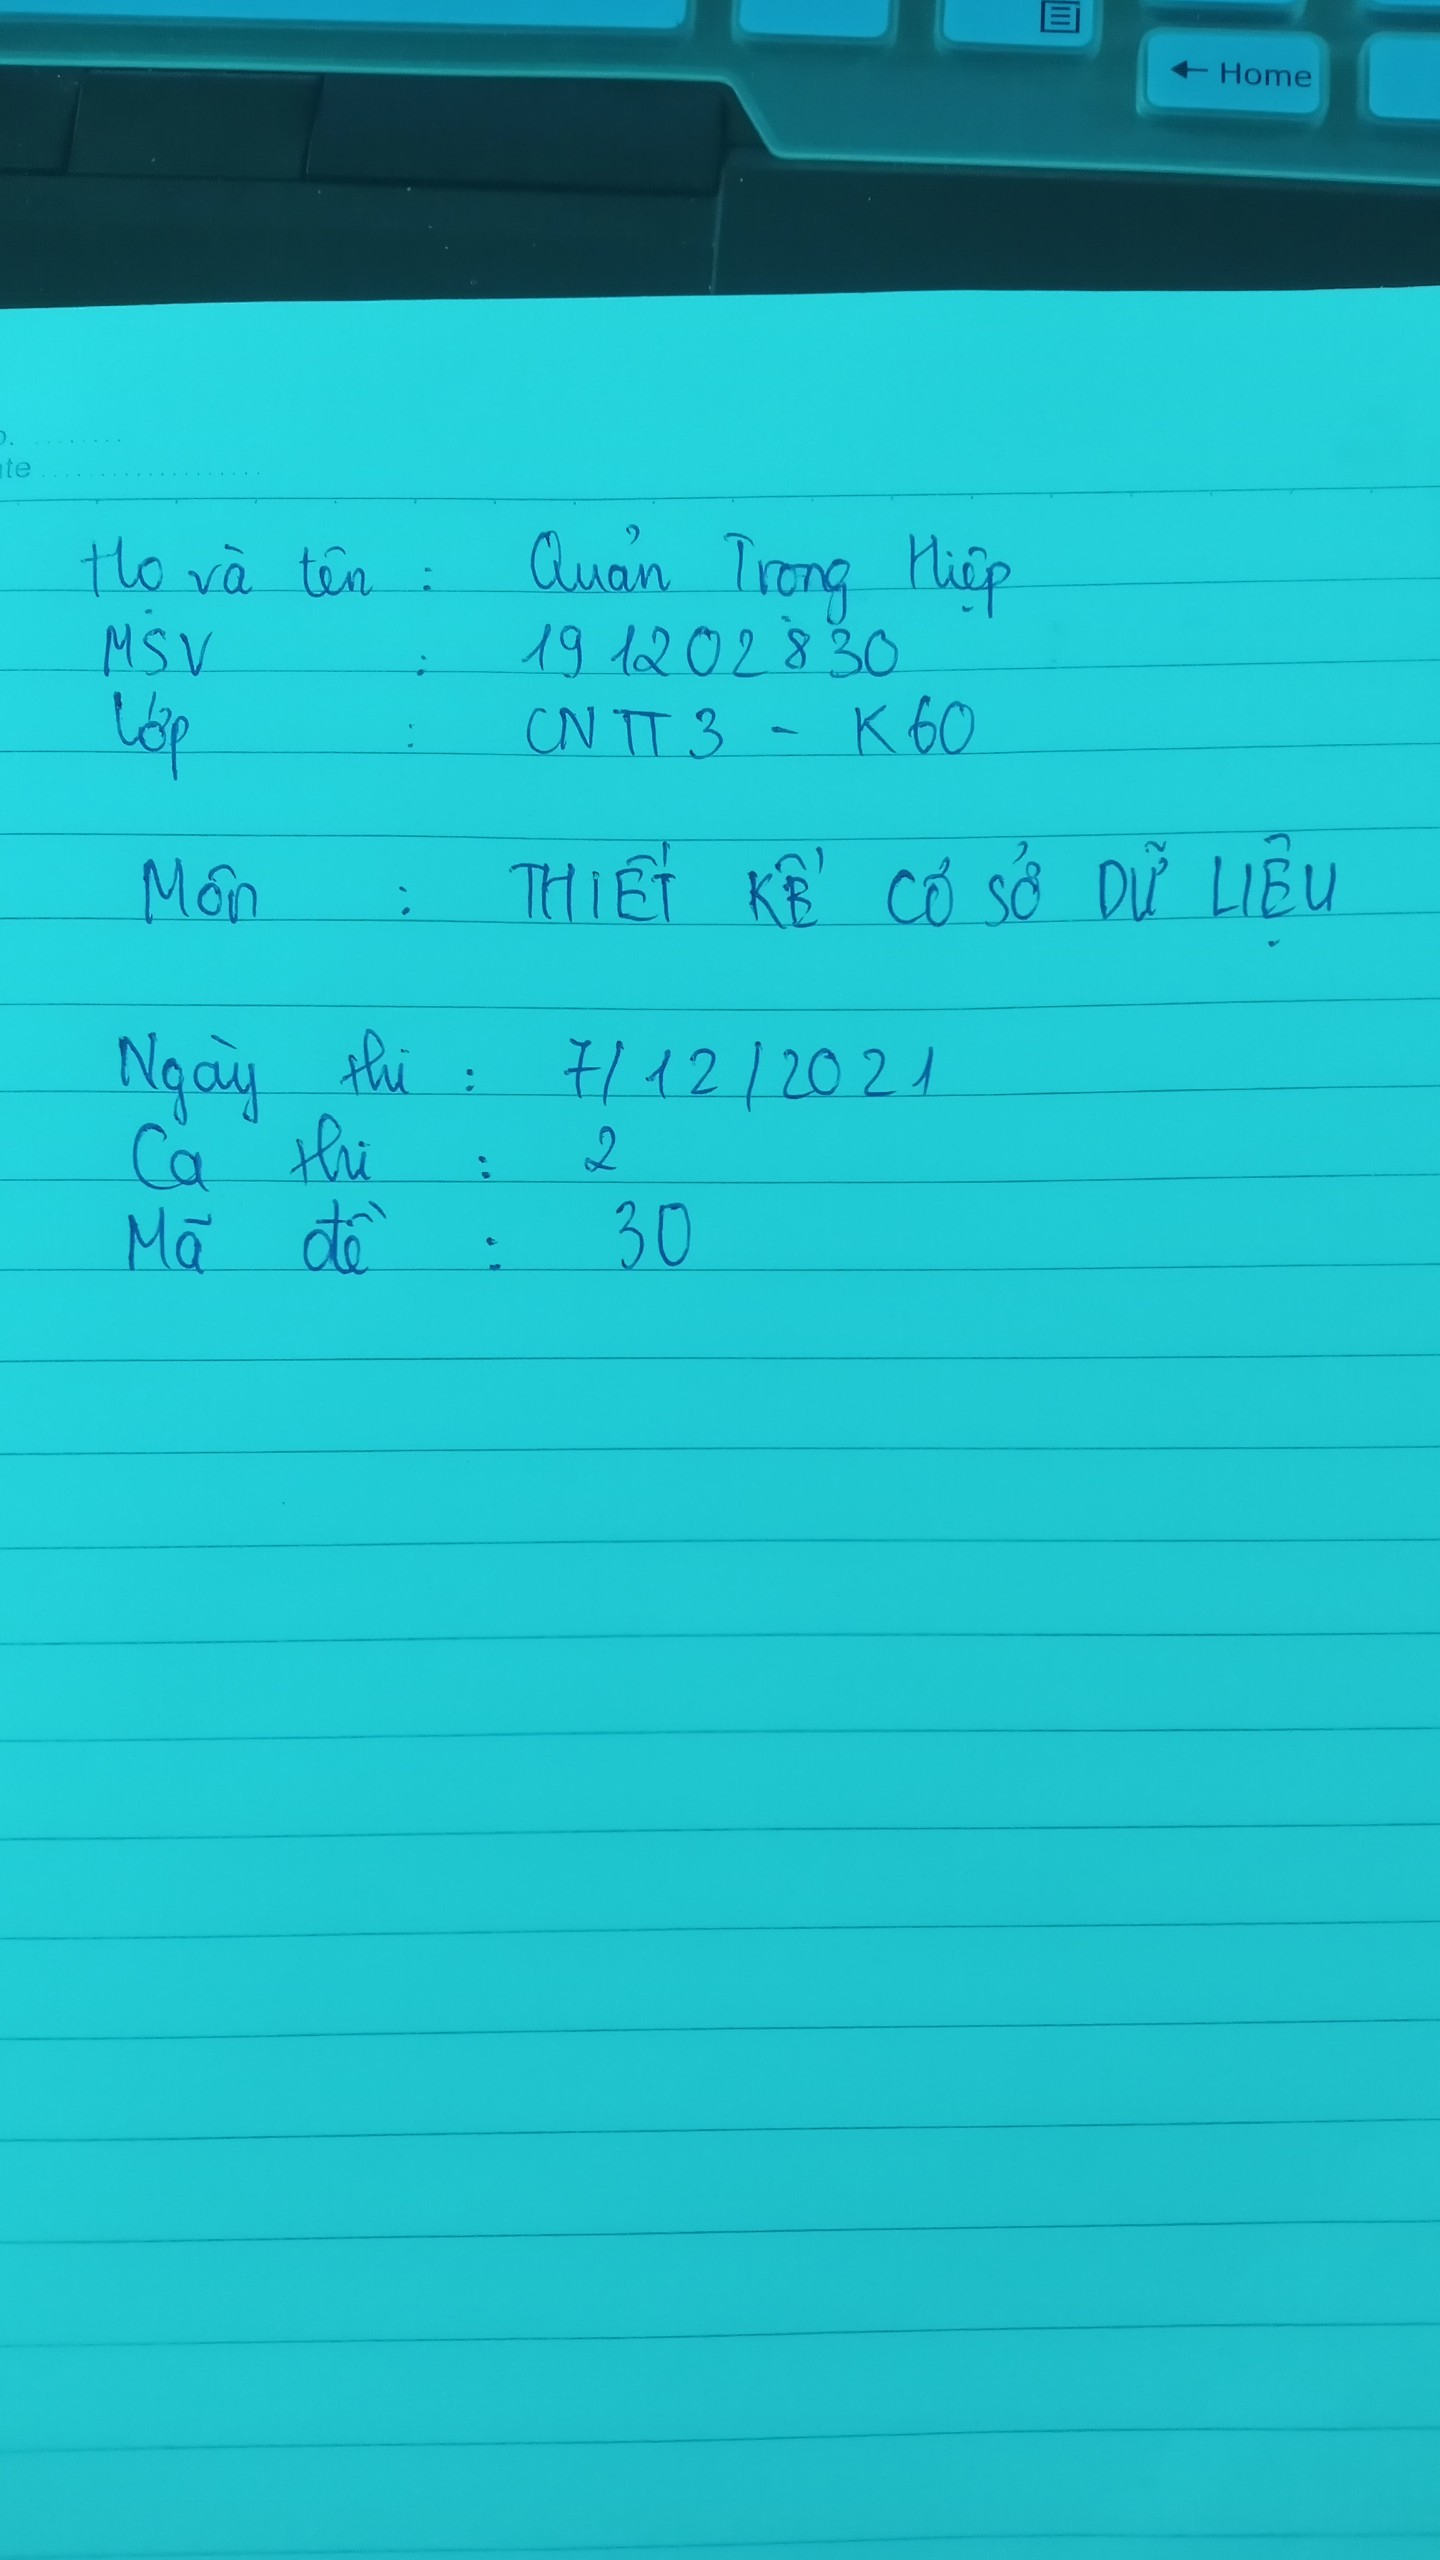 ← Home
Họ và tên : Quản Trọng Hiệp
MSV : 191202830
Lớp : CNTT3 - K60
Môn : THIẾT KẾ CƠ SỞ DỮ LIỆU
Ngày thi : 7/12/2021
Ca thi : 2
Mã đề : 30